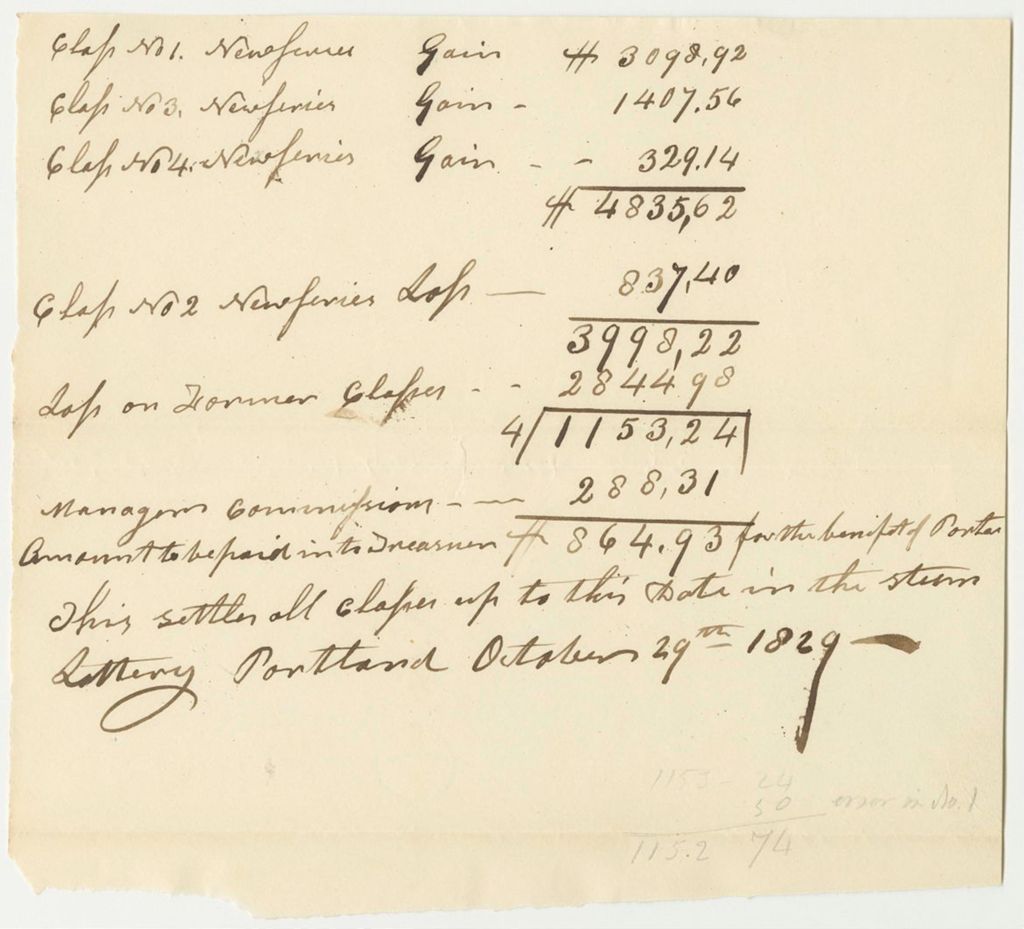 Class No 1. New series Gain $ 3098,92
Class No 3. New series Gain - 1407.56
Class No 4. New series Gain - - 329.14
$ 4835,62
Class No 2 New series Loss — 837,40
3998,22
Loss on Former Classes - - 284498
4/ 1153,24
Managers Commissions - — 288,31
Amount to be paid into Treasurer $ 864.93 for the benifit of Portla
This settles all Classes up to this Date in the steam
Lottery Portland October 29th 1829 —
1153 - 24
50 error in No. 1
115.2 74